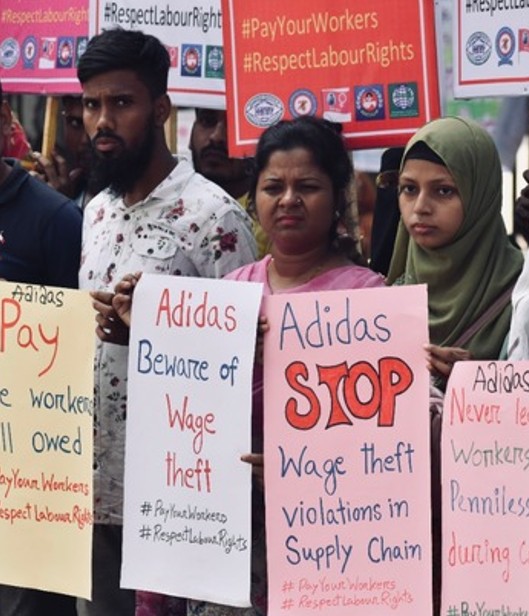 #RespectLabourRight
#RespectLabourRigh
#PayYourWorkers
#RespectLabourRights
#RespectLabou
Adidas
Pay
e workers
ll owed
PayYourWorkers
espectLabourRigh
Adidas
Beware of
Wage
theft
#PayYourWorkers
#RespectLabourRights
Adidas
STOP
Wage theft
violations in
Supply Chain
#PayYourWorkers
#RespectLabourRights
Adidas
Never le
Workers
Penniless
during c
#PayYourWorke